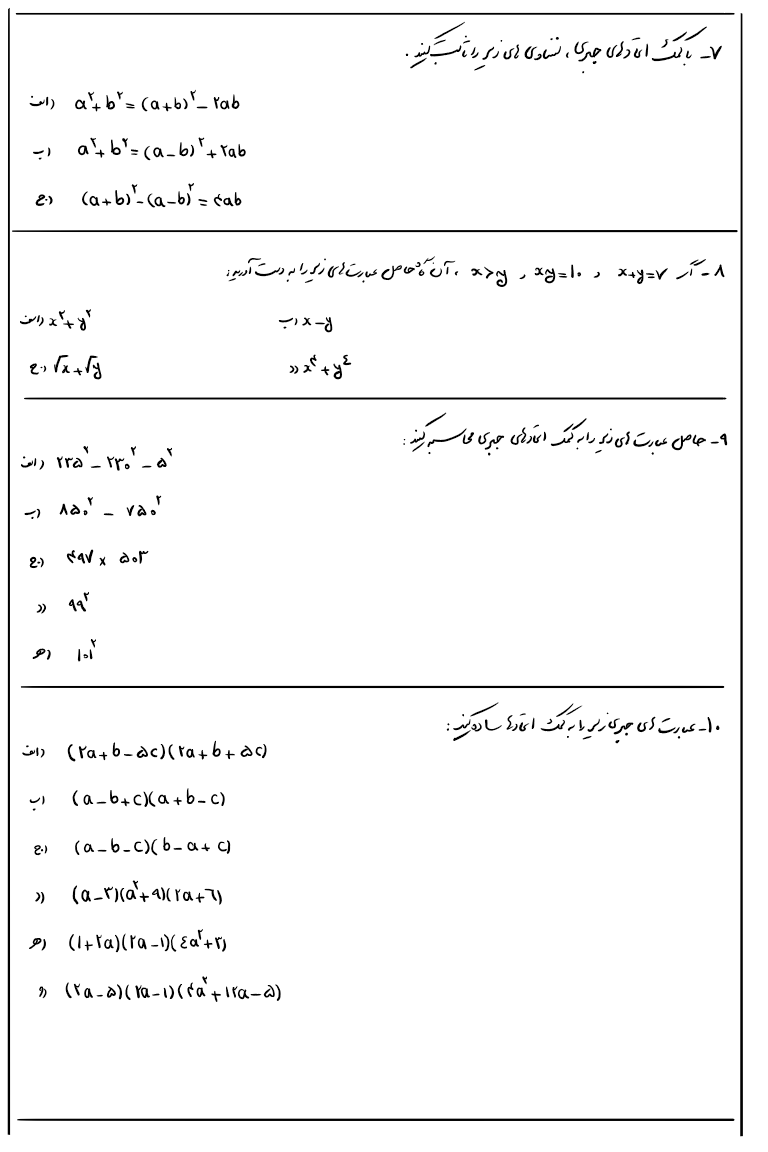 ۷- با کمک اتحادهای جبری، تساوی های زیر را ثابت کنید.
الف) a²+b²=(a+b)²-۲ab
ب) a²+b²=(a-b)²+۲ab
ج) (a+b)²-(a-b)²=۴ab
۸- اگر x+y=۷ و xy=۱۰ و x>y ، آن گاه حاصل عبارت های زیر را به دست آورید:
الف) x²+y² ب) x-y
ج) √x+√y د) x⁴+y⁴
۹- حاصل عبارت های زیر را به کمک اتحادهای جبری محاسبه کنید:
الف) ۲۳۵² - ۲۳۰² - ۵²
ب) ۸۵۰² - ۷۵۰²
ج) ۴۹۷ × ۵۰۳
د) ۹۹²
ه) ۱۰۱²
۱۰- عبارت های جبری زیر را به کمک اتحادها ساده کنید:
الف) (۲a+b-۵c)(۲a+b+۵c)
ب) (a-b+c)(a+b-c)
ج) (a-b-c)(b-a+c)
د) (a-۳)(a²+۹)(۲a+۶)
ه) (۱+۲a)(۲a-۱)(۴a²+۳)
و) (۲a-۵)(۲a-۱)(۴a²+۱۲a-۵)